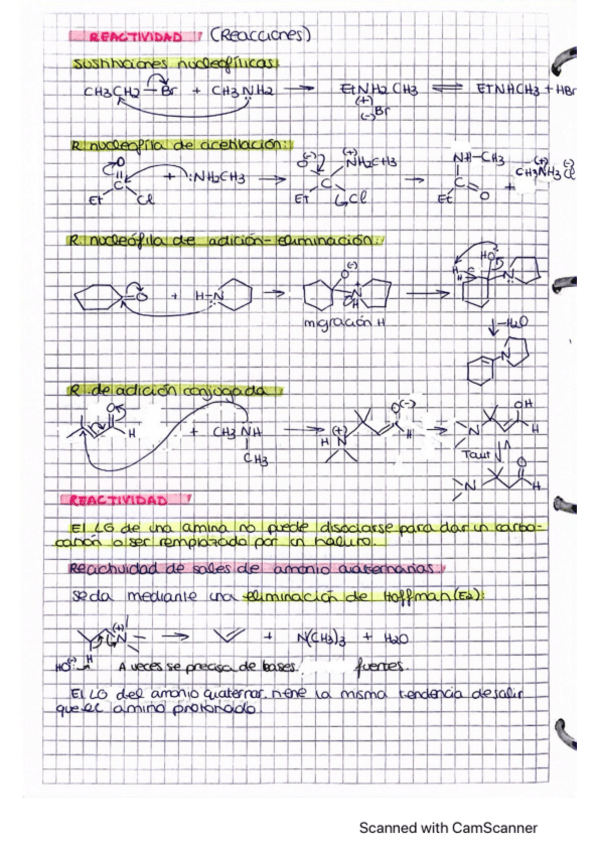 REACTIVIDAD (Reacciones)
Sustituciones nucleofílicas:
CH3CH2–Br + CH3NH2 → EtNH2CH3 ⇌ ETNHCH3 + HBr
(+)
(-)Br
R. nucleofila de acetilación:
O (-) (+) NH2CH3 NH–CH3 (+) (-)
C + :NH2CH3 → C → C + CH3NH3 Cl
Et Cl ET Cl Et O
R. nucleófila de adición-eliminación:
O (-) HO H H
O + H–N → N → N
H
migración H
↓ -H2O
N
R. de adición conjugada
O O(-) OH
H + CH3 NH → (+) H → H
CH3 H N N
Taut
O
N H
REACTIVIDAD
El LG de una amina no puede disociarse para dar un carbo-
catión o ser remplazado por un haluro.
Reactividad de sales de amonio cuaternarias
Se da mediante una eliminación de Hoffman (E2):
(+)
N → + N(CH3)3 + H2O
HO(-) H A veces se precisa de bases fuertes.
El LG del amonio cuaternar. tiene la misma tendencia de salir
que el amino protonado
Scanned with CamScanner